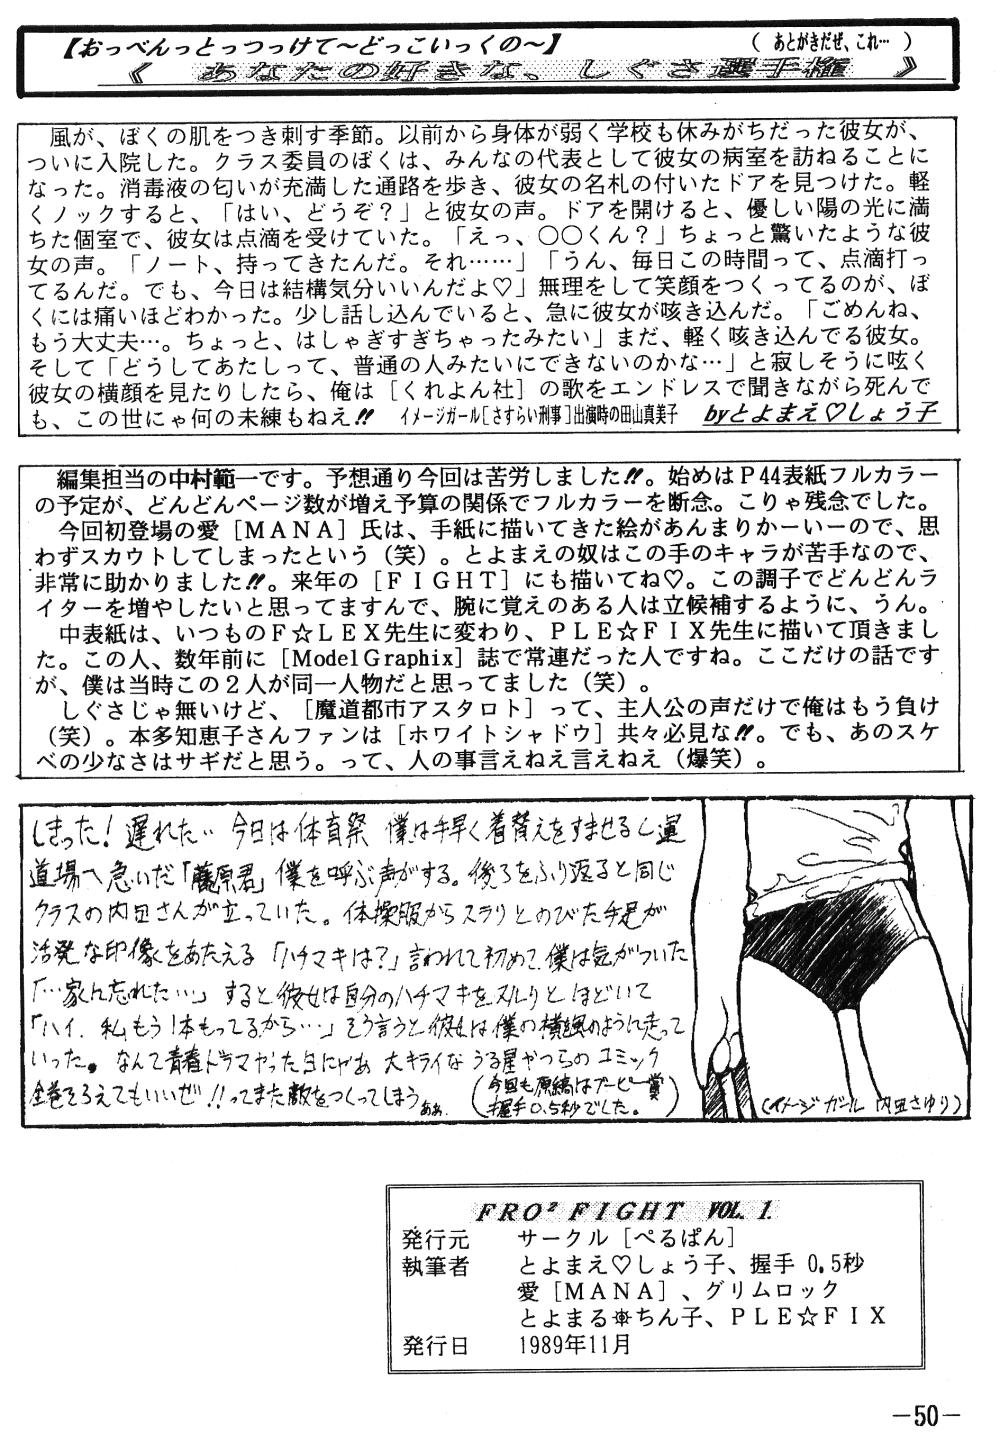 【おっべんっとっつっけて〜どっこいっくの〜】　（ あとがきだぜ、これ… ）
《 あなたの好きな、しぐさ選手権 》
風が、ぼくの肌をつき刺す季節。以前から身体が弱く学校も休みがちだった彼女が、
ついに入院した。クラス委員のぼくは、みんなの代表として彼女の病室を訪ねることに
なった。消毒液の匂いが充満した通路を歩き、彼女の名札の付いたドアを見つけた。軽
くノックすると、「はい、どうぞ？」と彼女の声。ドアを開けると、優しい陽の光に満
ちた個室で、彼女は点滴を受けていた。「えっ、○○くん？」ちょっと驚いたような彼
女の声。「ノート、持ってきたんだ。それ……」「うん、毎日この時間って、点滴打っ
てるんだ。でも、今日は結構気分いいんだよ♡」無理をして笑顔をつくってるのが、ぼ
くには痛いほどわかった。少し話し込んでいると、急に彼女が咳き込んだ。「ごめんね、
もう大丈夫…。ちょっと、はしゃぎすぎちゃったみたい」まだ、軽く咳き込んでる彼女。
そして「どうしてあたしって、普通の人みたいにできないのかな…」と寂しそうに呟く
彼女の横顔を見たりしたら、俺は［くれよん社］の歌をエンドレスで聞きながら死んで
も、この世にゃ何の未練もねえ!!　イメージガール［さすらい刑事］出演時の田山真美子　byとよまえ♡しょう子
編集担当の中村範一です。予想通り今回は苦労しました!!。始めはＰ44表紙フルカラー
の予定が、どんどんページ数が増え予算の関係でフルカラーを断念。こりゃ残念でした。
今回初登場の愛［ＭＡＮＡ］氏は、手紙に描いてきた絵があんまりかーいーので、思
わずスカウトしてしまったという（笑）。とよまえの奴はこの手のキャラが苦手なので、
非常に助かりました!!。来年の［ＦＩＧＨＴ］にも描いてね♡。この調子でどんどんラ
イターを増やしたいと思ってますんで、腕に覚えのある人は立候補するように、うん。
中表紙は、いつものＦ☆ＬＥＸ先生に変わり、ＰＬＥ☆ＦＩＸ先生に描いて頂きまし
た。この人、数年前に［ModelGraphix］誌で常連だった人ですね。ここだけの話です
が、僕は当時この２人が同一人物だと思ってました（笑）。
しぐさじゃ無いけど、［魔道都市アスタロト］って、主人公の声だけで俺はもう負け
（笑）。本多知恵子さんファンは［ホワイトシャドウ］共々必見な!!。でも、あのスケ
ベの少なさはサギだと思う。って、人の事言えねえ言えねえ（爆笑）。
しまった！遅れた… 今日は体育祭 僕は手早く着替えをすませるし運
道場へ急いだ「藤原君」僕を呼ぶ声がする。後ろをふり返ると同じ
クラスの内田さんが立っていた。体操服からスラリとのびた手足が
活発な印像をあたえる「ハチマキは？」言われて初めて僕は気がついた
「…家に忘れた…」すると彼女は自分のハチマキをスルリとほどいて
「ハイ．私もう1本もってるから…」そう言うと彼女は僕の横を風のように走って
いった。なんて青春ドラマやった日にゃあ 大キライなうる星やつらのコミック
全巻そろえてもいいぜ!!ってまた敵をつくってしまうああ．
（今回も原稿はブービー賞
握手0.5秒でした。）
（イメージガール 内田さゆり）
FRO² FIGHT VOL. 1.
発行元　サークル［ぺるぱん］
執筆者　とよまえ♡しょう子、握手 0.5秒
愛［ＭＡＮＡ］、グリムロック
とよまる☸ちん子、ＰＬＥ☆ＦＩＸ
発行日　1989年11月
—50—